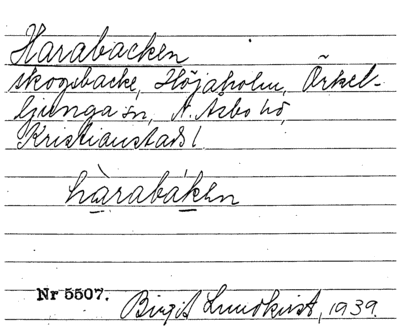 Harabacken
skogsbacke, Höjaholm, Örkel-
ljunga sn, N. Åsbo hd,
Kristianstads l.
hàrabáken
Nr 5507.
Birgit Lundkvist, 1939.